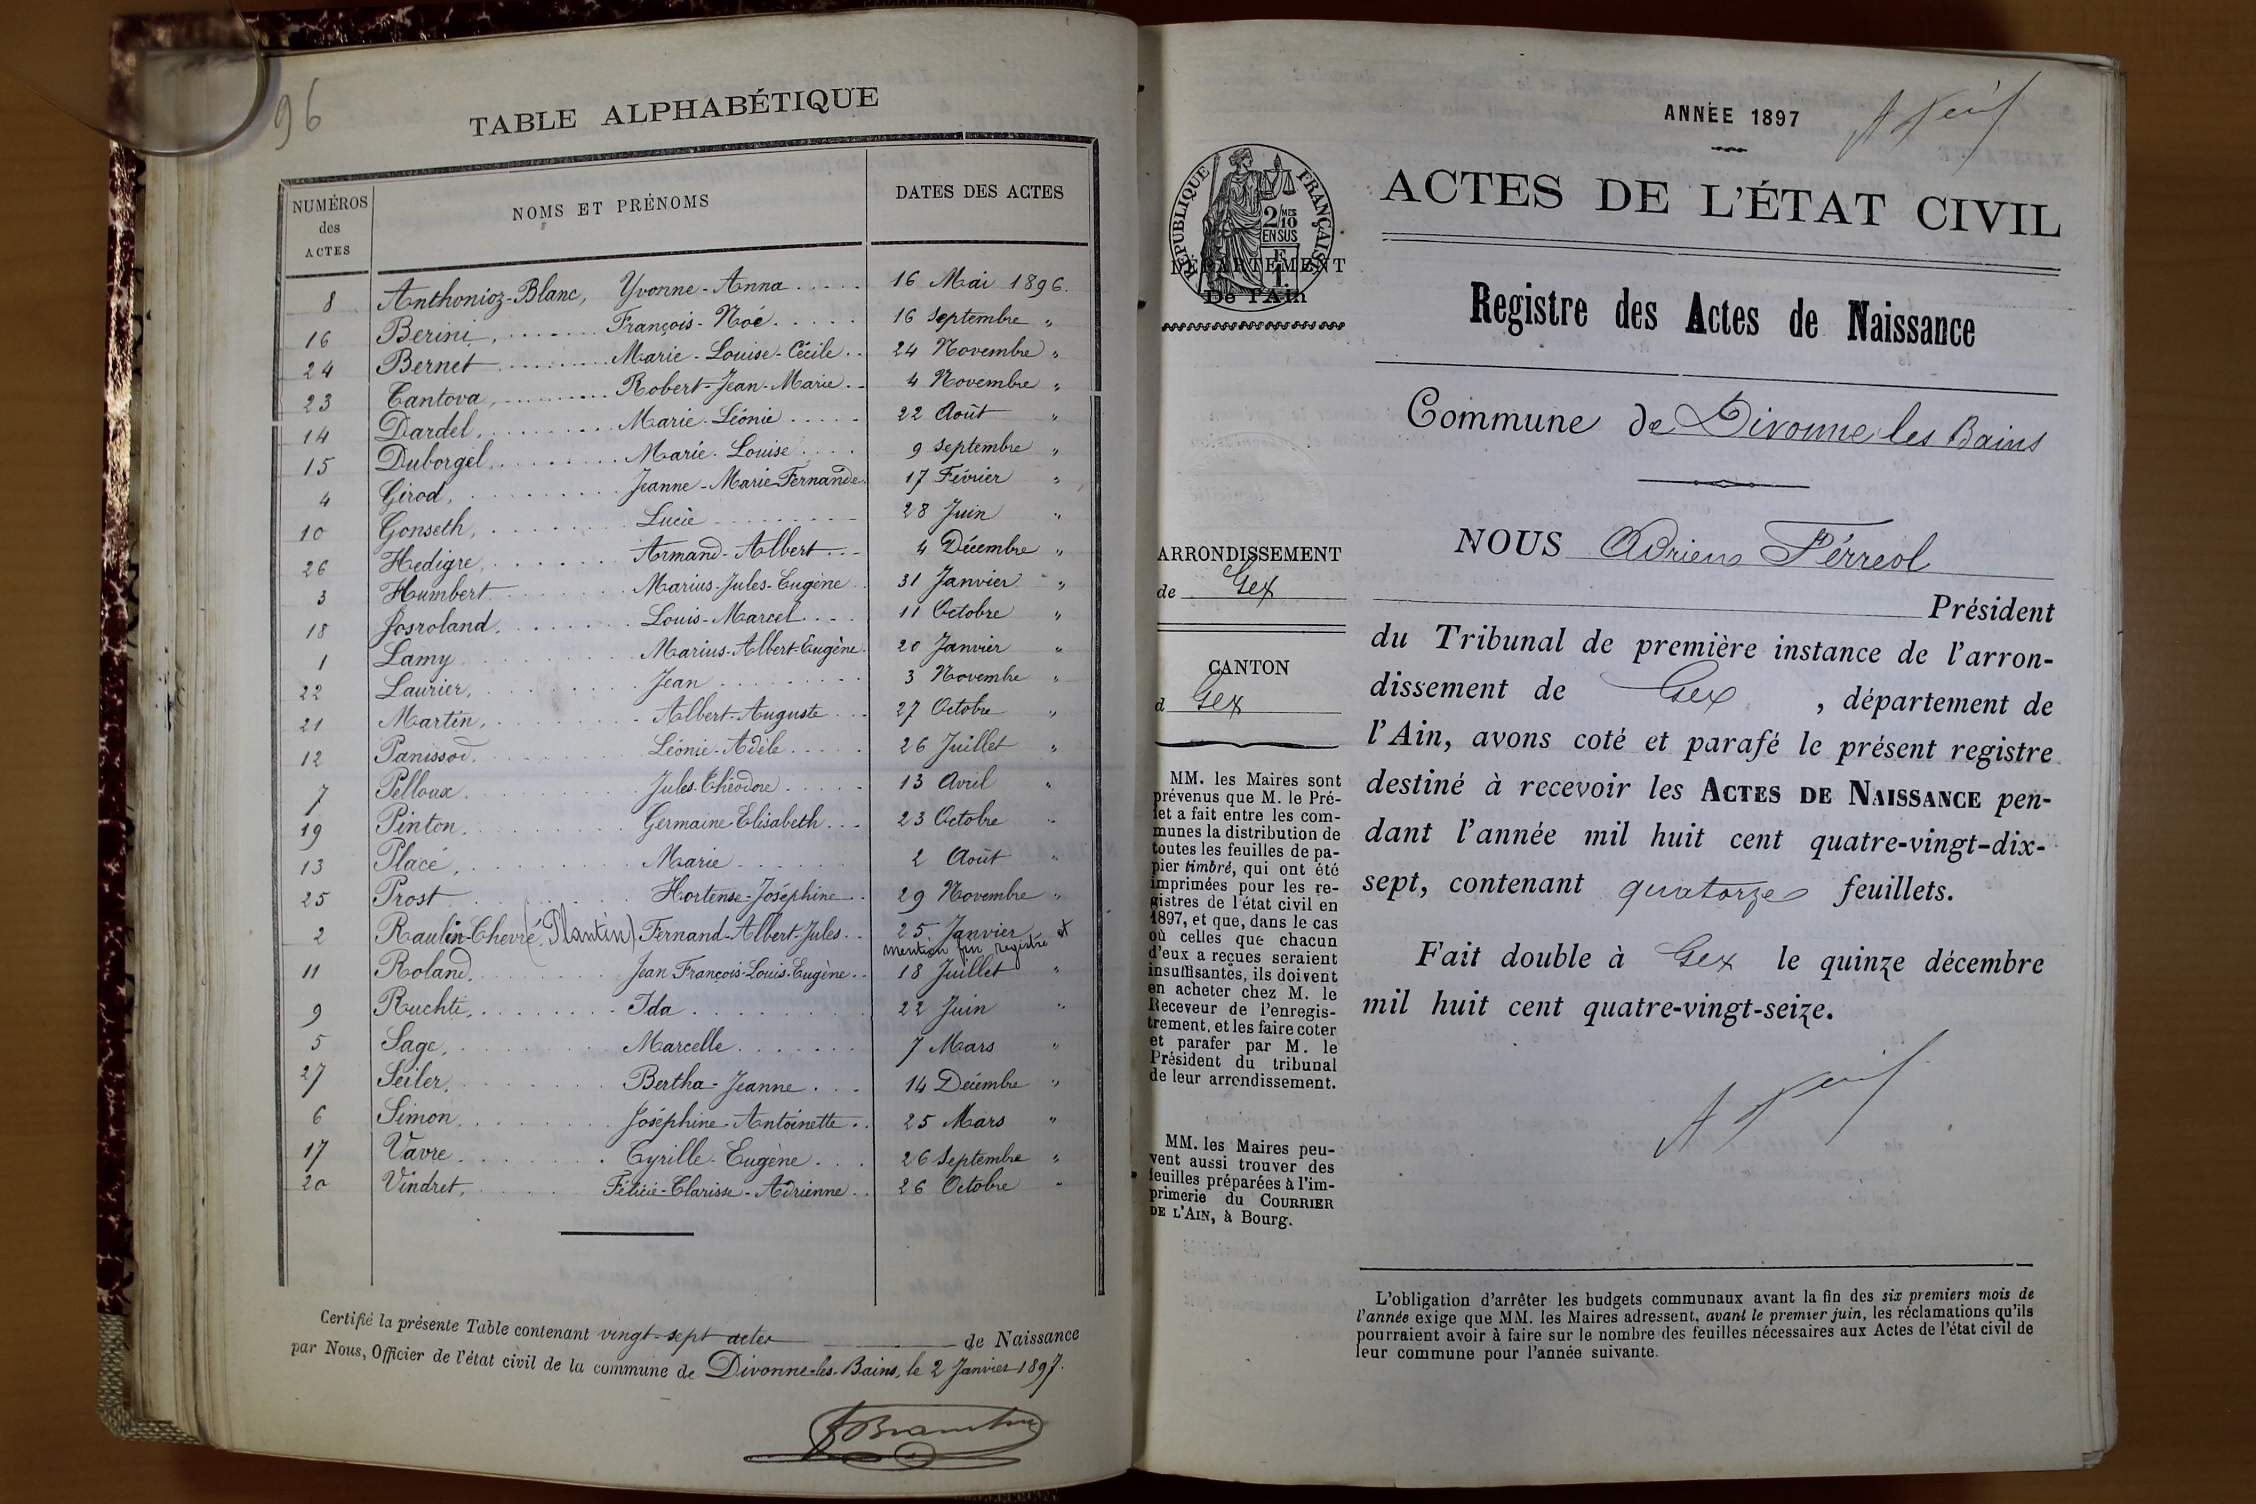 96
TABLE ALPHABÉTIQUE
NUMÉROS des ACTES
NOMS ET PRÉNOMS
DATES DES ACTES
8 Anthonioz-Blanc, Yvonne-Anna 16 Mai 1896.
16 Berini, François-Noé 16 Septembre "
24 Bernet Marie-Louise-Cécile 24 Novembre "
23 Cantova, Robert-Jean-Marie 4 Novembre "
14 Dardel, Marie-Léonie 22 Août "
15 Duborgel, Marie-Louise 9 Septembre "
4 Girod, Jeanne-Marie-Fernande 17 Février "
10 Gonseth, Lucie 28 Juin "
26 Hedigre, Armand-Albert 4 Décembre "
3 Humbert Marius-Jules-Eugène 31 Janvier "
18 Josroland, Louis-Marcel 11 Octobre "
1 Lamy Marius-Albert-Eugène 20 Janvier "
22 Laurier, Jean 3 Novembre "
21 Martin, Albert-Auguste 27 Octobre "
12 Panissod, Léonie-Adèle 26 Juillet "
7 Pelloux Jules-Théodore 13 Avril "
19 Pinton, Germaine Elisabeth 23 Octobre "
13 Placé, Marie 2 Août "
25 Prost Hortense-Joséphine 29 Novembre "
2 Raulin-Chevré (Plantin) Fernand-Albert-Jules 25 Janvier et
mention fin registre
11 Roland, Jean François-Louis-Eugène 18 Juillet "
9 Ruchti, Ida 22 Juin "
5 Sage, Marcelle 7 Mars "
27 Seiler, Bertha-Jeanne 14 Décembre "
6 Simon Joséphine-Antoinette 25 Mars "
17 Vavre Cyrille-Eugène 26 Septembre "
20 Vindret, Félicie-Clarisse-Adrienne 26 Octobre "
Certifié la présente Table contenant vingt-sept actes de Naissance
par Nous, Officier de l'état civil de la commune de Divonne-les-Bains, le 2 Janvier 1897.
ANNÉE 1897
RÉPUBLIQUE FRANÇAISE
2/10 MES
EN SUS
F
1.
DÉPARTEMENT
De l'Ain
ACTES DE L'ÉTAT CIVIL
Registre des Actes de Naissance
Commune de Divonne les Bains
ARRONDISSEMENT
de Gex
CANTON
d Gex
MM. les Maires sont
prévenus que M. le Pré-
fet a fait entre les com-
munes la distribution de
toutes les feuilles de pa-
pier timbré, qui ont été
imprimées pour les re-
gistres de l'état civil en
1897, et que, dans le cas
où celles que chacun
d'eux a reçues seraient
insuffisantes, ils doivent
en acheter chez M. le
Receveur de l'enregis-
trement, et les faire coter
et parafer par M. le
Président du tribunal
de leur arrondissement.
MM. les Maires peu-
vent aussi trouver des
feuilles préparées à l'im-
primerie du COURRIER
DE L'AIN, à Bourg.
NOUS Adrien Férreol
Président
du Tribunal de première instance de l'arron-
dissement de Gex, département de
l'Ain, avons coté et parafé le présent registre
destiné à recevoir les ACTES DE NAISSANCE pen-
dant l'année mil huit cent quatre-vingt-dix-
sept, contenant quatorze feuillets.
Fait double à Gex le quinze décembre
mil huit cent quatre-vingt-seize.
L'obligation d'arrêter les budgets communaux avant la fin des six premiers mois de
l'année exige que MM. les Maires adressent, avant le premier juin, les réclamations qu'ils
pourraient avoir à faire sur le nombre des feuilles nécessaires aux Actes de l'état civil de
leur commune pour l'année suivante.